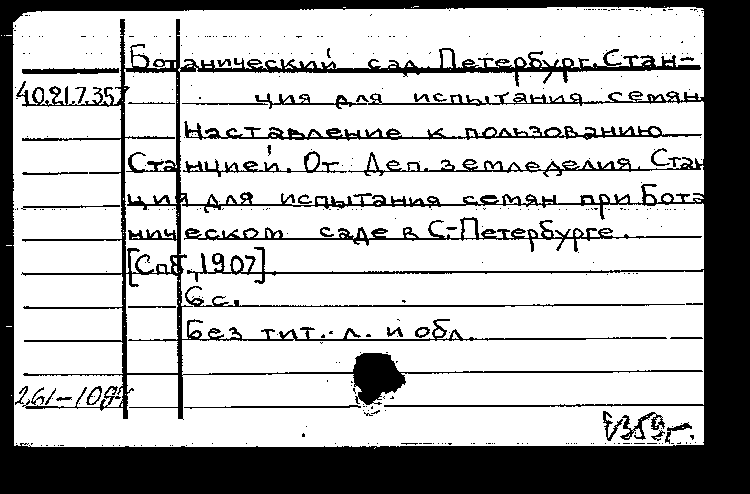 Ботанический сад. Петербург. Стан-
40.21.7.357
ция для испытания семян
Наставление к пользованию
Станцией. От Деп. земледелия. Стан
ция для испытания семян при Бота
ническом саде в С-Петербурге.
[Спб., 1907].
6 с.
Без тит. л. и обл.